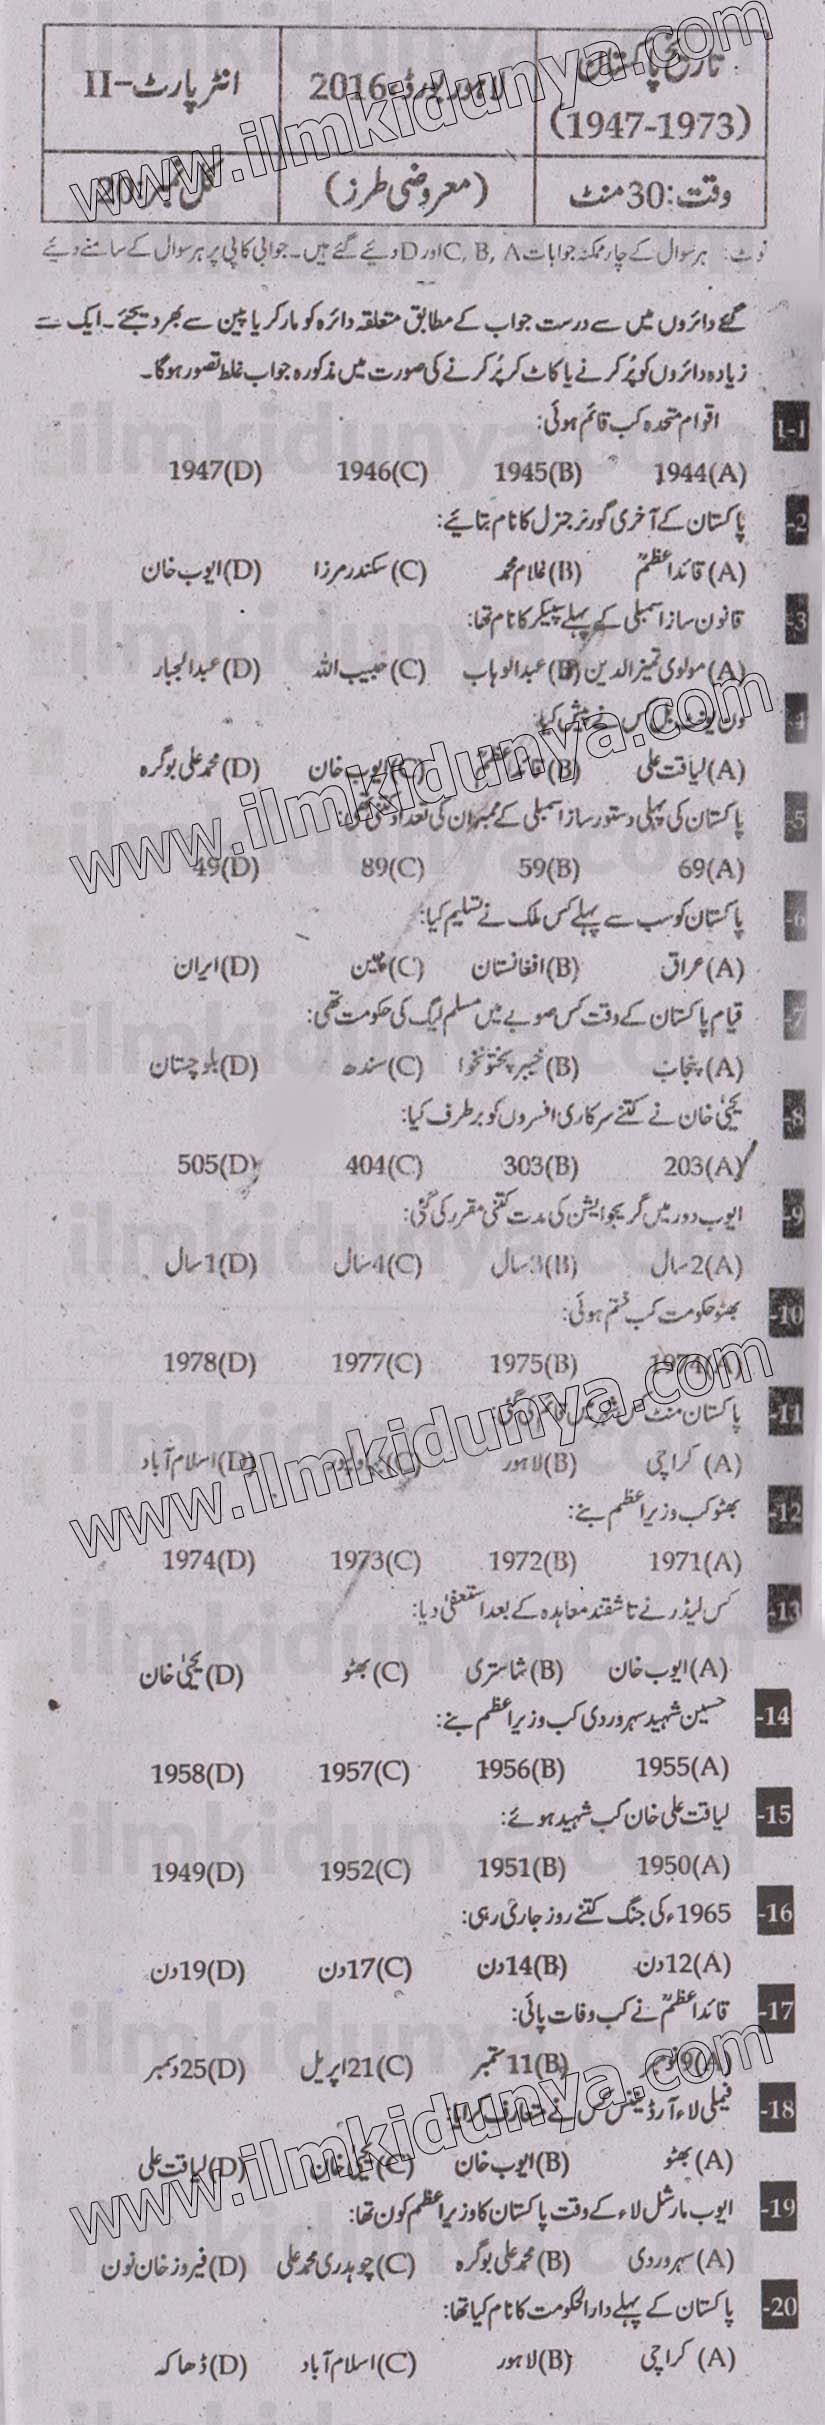 تاریخ پاکستان (1947-1973)
لاہور بورڈ 2016
انٹر پارٹ-II
وقت: 30 منٹ
(معروضی طرز)
کل نمبر: 20
نوٹ: ہر سوال کے چار ممکنہ جوابات C, B, A اور D دیئے گئے ہیں۔ جوابی کاپی پر ہر سوال کے سامنے دیئے
گئے دائروں میں سے درست جواب کے مطابق متعلقہ دائرہ کو مارکر یا پین سے بھر دیجئے۔ ایک سے
زیادہ دائروں کو پُر کرنے یا کاٹ کر پُر کرنے کی صورت میں مذکورہ جواب غلط تصور ہوگا۔
1-1 اقوام متحدہ کب قائم ہوئی:
(A) 1944 (B) 1945 (C) 1946 (D) 1947
-2 پاکستان کے آخری گورنر جنرل کا نام بتائیے:
(A) قائداعظمؒ (B) غلام محمد (C) سکندر مرزا (D) ایوب خان
-3 قانون ساز اسمبلی کے پہلے سپیکر کا نام تھا:
(A) مولوی تمیز الدین (B) عبدالوہاب (C) حبیب اللہ (D) عبدالجبار
-4 ون یونٹ بل کس نے پیش کیا:
(A) لیاقت علی (B) قائداعظمؒ (C) ایوب خان (D) محمد علی بوگرہ
-5 پاکستان کی پہلی دستور ساز اسمبلی کے ممبران کی تعداد کتنی تھی:
(A) 69 (B) 59 (C) 89 (D) 49
-6 پاکستان کو سب سے پہلے کس ملک نے تسلیم کیا:
(A) عراق (B) افغانستان (C) چین (D) ایران
-7 قیام پاکستان کے وقت کس صوبے میں مسلم لیگ کی حکومت تھی:
(A) پنجاب (B) خیبر پختونخوا (C) سندھ (D) بلوچستان
-8 یحییٰ خان نے کتنے سرکاری افسروں کو برطرف کیا:
(A) 203 (B) 303 (C) 404 (D) 505
-9 ایوب دور میں گریجوایشن کی مدت کتنی مقرر کی گئی:
(A) 2 سال (B) 3 سال (C) 4 سال (D) 1 سال
-10 بھٹو حکومت کب ختم ہوئی:
(A) 1974 (B) 1975 (C) 1977 (D) 1978
-11 پاکستان منٹ کس شہر میں قائم کی گئی:
(A) کراچی (B) لاہور (C) بہاولپور (D) اسلام آباد
-12 بھٹو کب وزیراعظم بنے:
(A) 1971 (B) 1972 (C) 1973 (D) 1974
-13 کس لیڈر نے تاشقند معاہدہ کے بعد استعفیٰ دیا:
(A) ایوب خان (B) شاستری (C) بھٹو (D) یحییٰ خان
-14 حسین شہید سہروردی کب وزیراعظم بنے:
(A) 1955 (B) 1956 (C) 1957 (D) 1958
-15 لیاقت علی خان کب شہید ہوئے:
(A) 1950 (B) 1951 (C) 1952 (D) 1949
-16 1965ء کی جنگ کتنے روز جاری رہی:
(A) 12 دن (B) 14 دن (C) 17 دن (D) 19 دن
-17 قائداعظمؒ نے کب وفات پائی:
(A) 9 نومبر (B) 11 ستمبر (C) 21 اپریل (D) 25 دسمبر
-18 فیملی لاء آرڈیننس کس نے متعارف کرایا:
(A) بھٹو (B) ایوب خان (C) یحییٰ خان (D) لیاقت علی
-19 ایوب مارشل لاء کے وقت پاکستان کا وزیراعظم کون تھا:
(A) سہروردی (B) محمد علی بوگرہ (C) چوہدری محمد علی (D) فیروز خان نون
-20 پاکستان کے پہلے دارالحکومت کا نام کیا تھا:
(A) کراچی (B) لاہور (C) اسلام آباد (D) ڈھاکہ
www.ilmkidunya.com
www.ilmkidunya.com
www.ilmkidunya.com
www.ilmkidunya.com